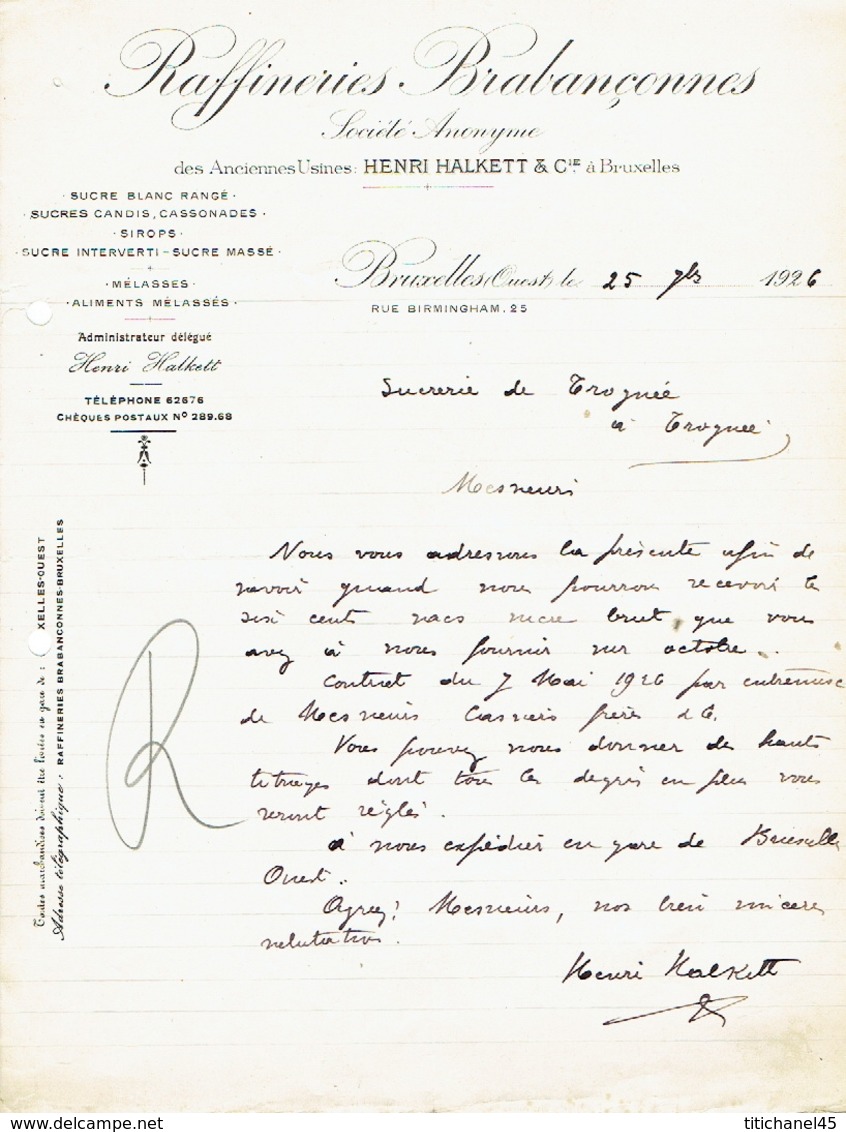 Raffineries Brabançonnes
Société Anonyme
des Anciennes Usines: HENRI HALKETT & CIE à Bruxelles
· SUCRE BLANC RANGÉ ·
· SUCRES CANDIS, CASSONADES ·
· SIROPS ·
· SUCRE INTERVERTI – SUCRE MASSÉ ·
· MÉLASSES ·
· ALIMENTS MÉLASSÉS ·
Administrateur délégué
Henri Halkett
TÉLÉPHONE 62676
CHÈQUES POSTAUX No 289.68
Bruxelles (Ouest) le 25 7bre 1926
RUE BIRMINGHAM, 25
Sucrerie de Trognée
à Trognée
Messieurs
Nous vous adressons la présente afin de
savoir quand nous pourrons recevoir le
six cents sacs sucre brut que vous
avez à nous fournir sur octobre..
Contrat du 7 Mai 1926 par entremise
de Messieurs frères & C.
Vous pouvez nous donner de hauts
titrages dont tous les degrés en plus vous
seront réglés.
à nous expédier en gare de Bruxelles
Ouest..
Agréez! Messieurs, nos bien sinceres
salutations.
Henri Halkett
R
Toutes marchandises doivent être livrées en gare de: XELLES-OUEST
Adresse télégraphique: RAFFINERIES BRABANÇONNES-BRUXELLES
www.delcampe.net
titichanel45